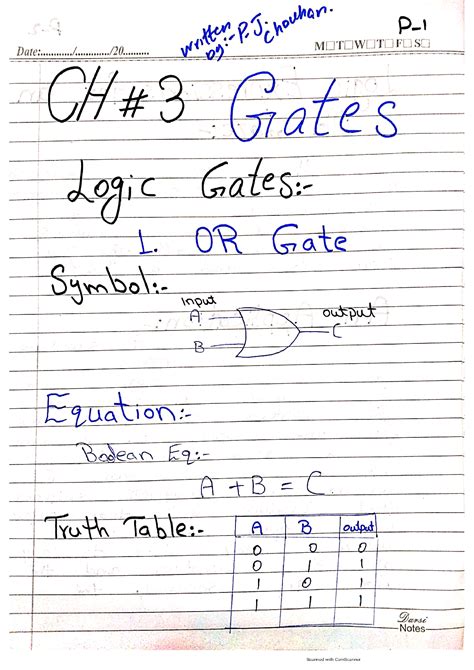 written by:- P.J. Chouhan.
P-1
Date:............/............/20.........
M T W T F S
CH # 3 Gates
Logic Gates:-
1. OR Gate
Symbol:-
input
A
output
C
B
Equation:-
Boolean Eq:-
A + B = C
Truth Table:-
A B output
0 0 0
0 1 1
1 0 1
1 1 1
Darsi
Notes
Scanned with CamScanner